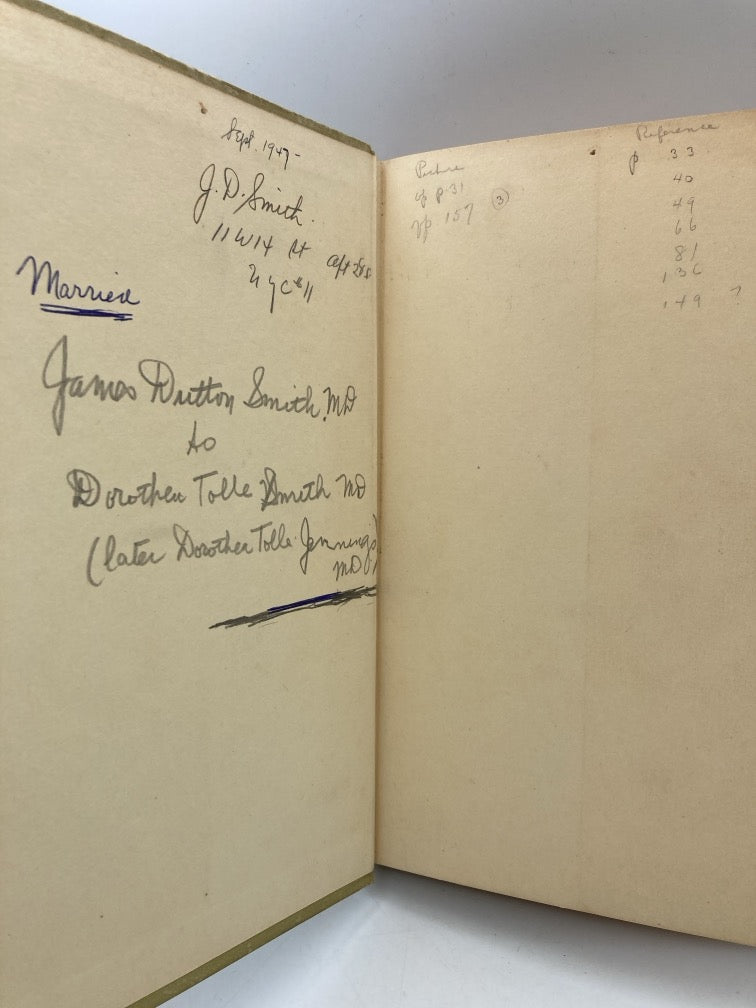 Sept. 1947-
J. D. Smith.
11 W 14 St Apt
NYC #11
Married
James Dutton Smith, MD
to
Dorothea Tolle Smith MD
(later Dorothea Tolle Jennings)
MD
Picture
op p 31
op 157 (3)
Reference
p 33
40
49
66
81
136
149 ?